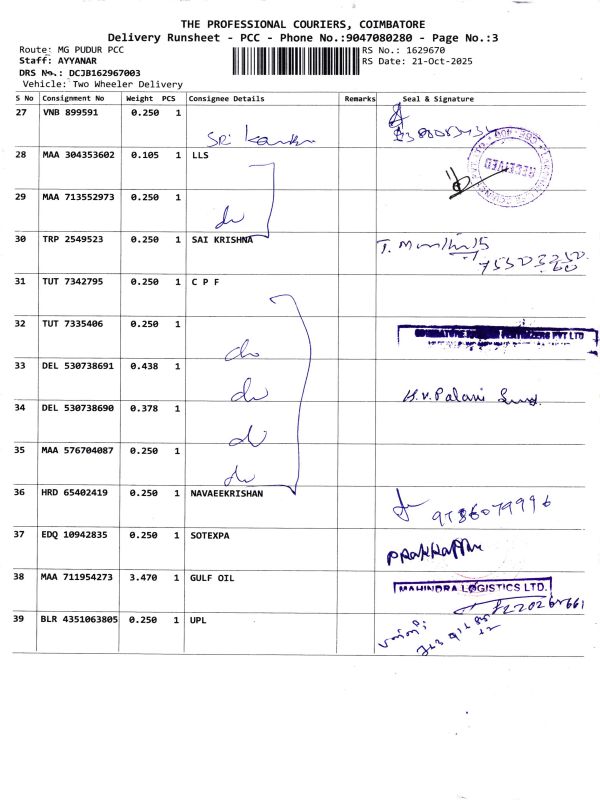 THE PROFESSIONAL COURIERS, COIMBATORE
Delivery Runsheet - PCC - Phone No.:9047080280 - Page No.:3
Route: MG PUDUR PCC RS No.: 1629670
Staff: AYYANAR RS Date: 21-Oct-2025
DRS No.: DCJB162967003
Vehicle: Two Wheeler Delivery
S No Consignment No Weight PCS Consignee Details Remarks Seal & Signature
27 VNB 899591 0.250 1
Sri
28 MAA 304353602 0.105 1 LLS
RECEIVED
29 MAA 713552973 0.250 1
do
30 TRP 2549523 0.250 1 SAI KRISHNA
31 TUT 7342795 0.250 1 C P F
32 TUT 7335406 0.250 1
do
COIMBATORE PVT LTD
33 DEL 530738691 0.438 1
do
H.V. Palani
34 DEL 530738690 0.378 1
do
35 MAA 576704087 0.250 1
do
36 HRD 65402419 0.250 1 NAVAEEKRISHAN
9786079996
37 EDQ 10942835 0.250 1 SOTEXPA
38 MAA 711954273 3.470 1 GULF OIL
MAHINDRA LOGISTICS LTD.
39 BLR 4351063805 0.250 1 UPL